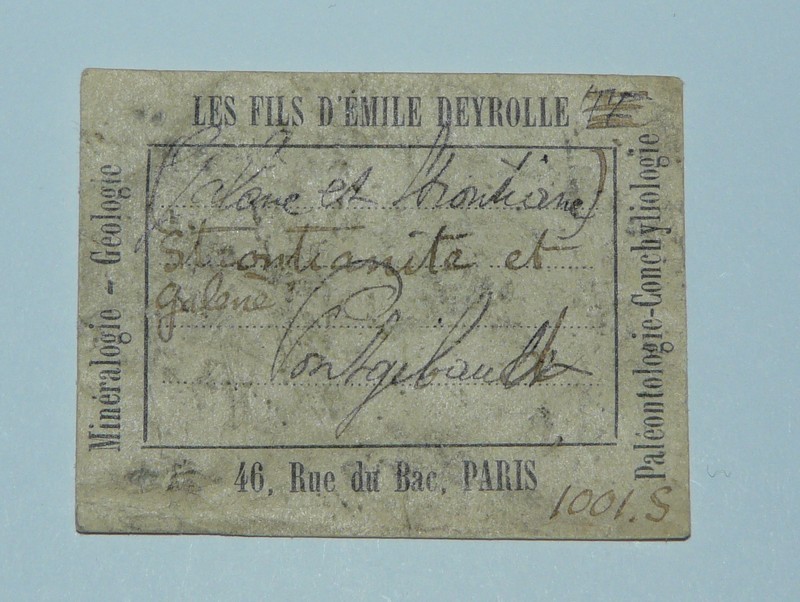 LES FILS D'ÉMILE DEYROLLE
Minéralogie - Géologie
Galène et Strontiane
Strontianite et
galène
Pontgibault
Paléontologie-Conchyliologie
46, Rue du Bac, PARIS
1001.S